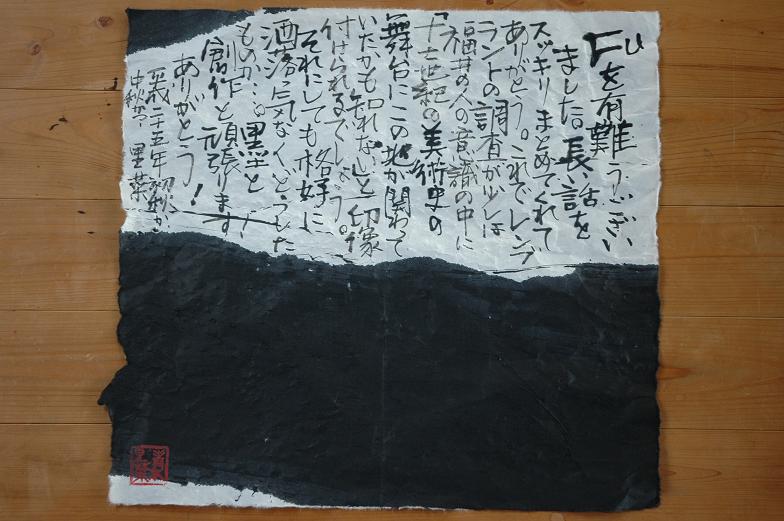 FUを有難うござい
ました。長い話を
スッキリまとめてくれて
ありがとう。これでレンブ
ラントの調査が少しは
福井の人の意識の中に
「十七世紀の美術史の
舞台にこの地が関わって
いたかも知れない」と印象
付けられるでしょう。
それにしても格好に
洒落っ気なくどうした
ものか…。墨と
創作と頑張ります！
ありがとう！
平成二十五年初秋か
中秋か